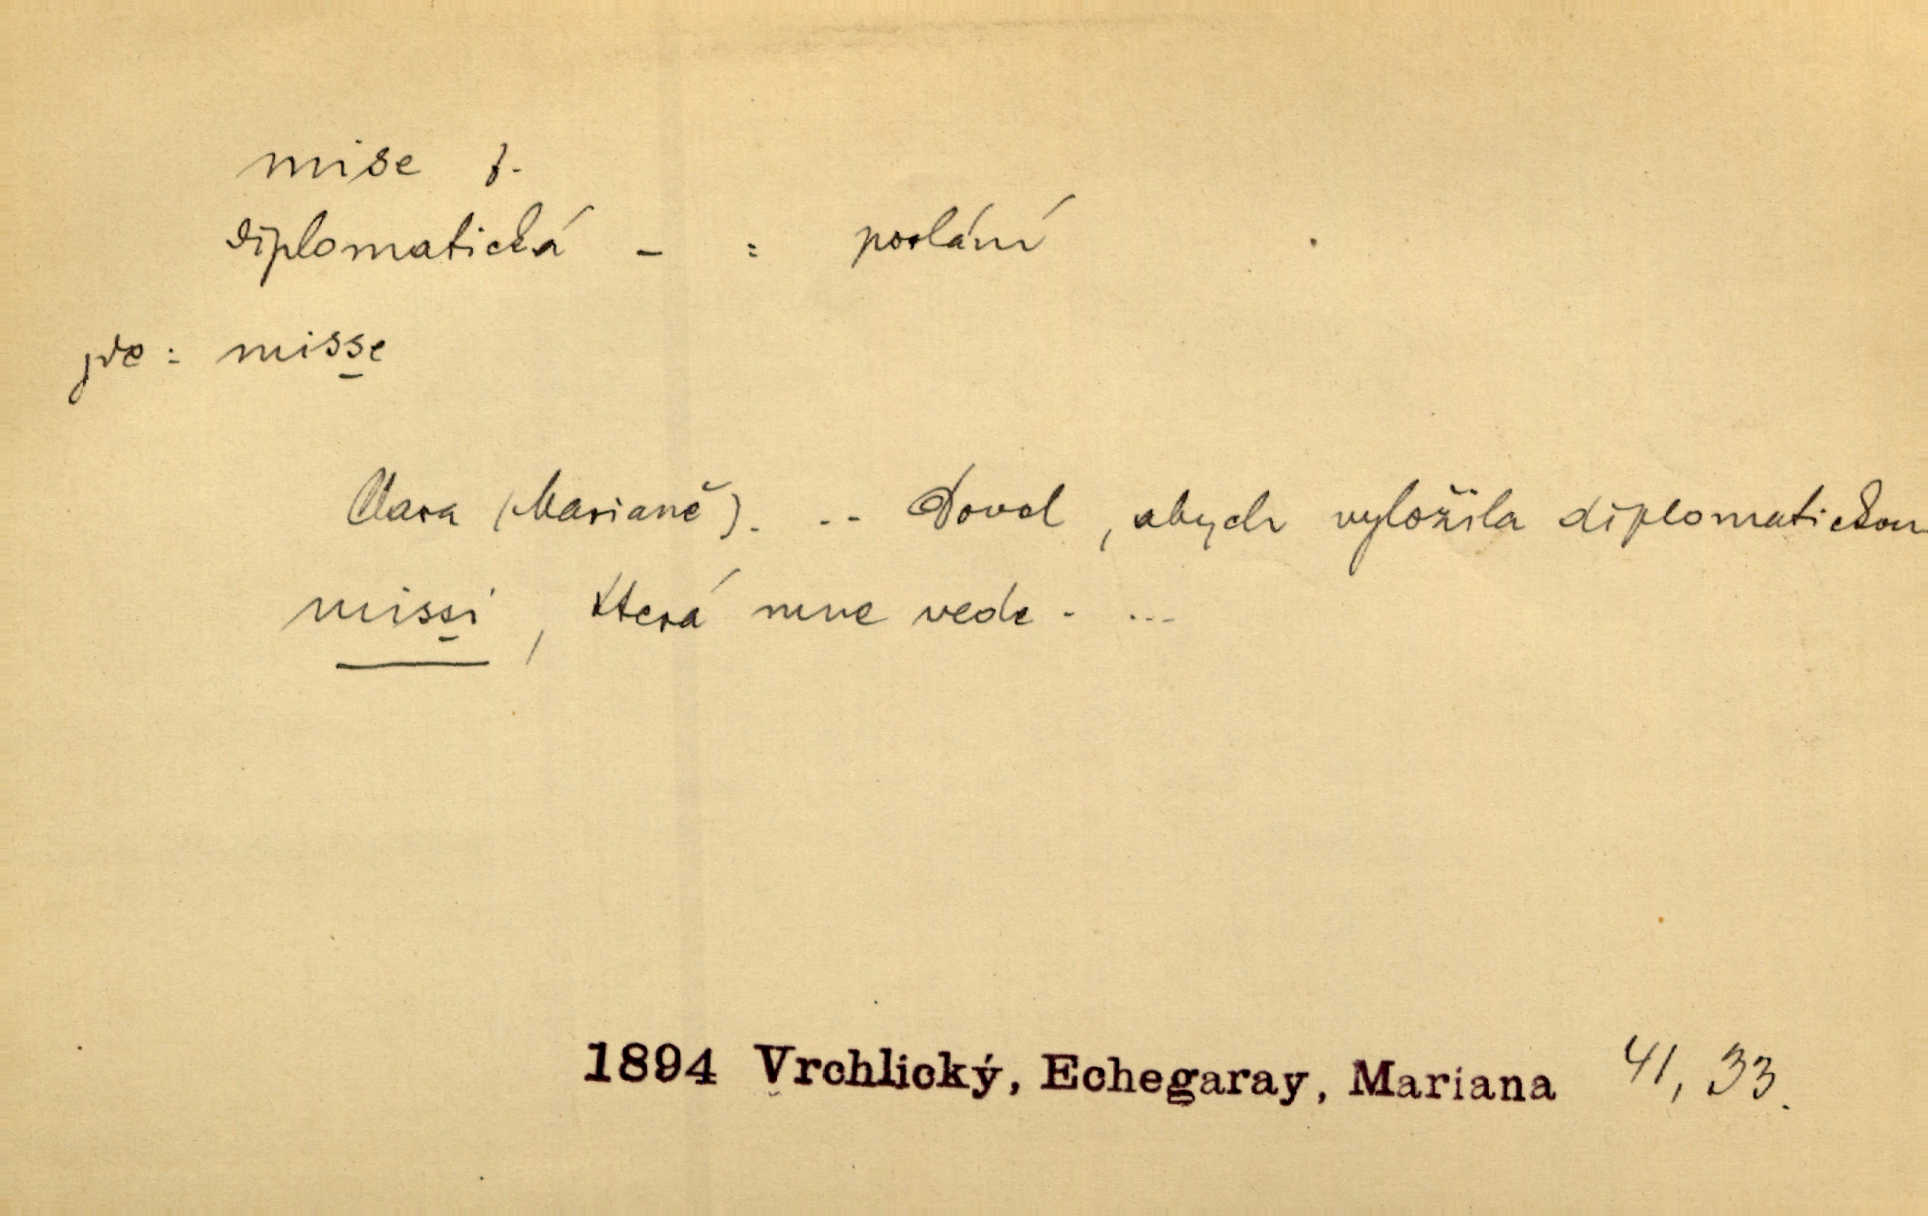 mise f.
diplomatická – = poslání
zde: misse
Clara (Marianě). .. Dovol, abych vyložila diplomatickou
missi, která mne vede. ...
1894 Vrchlický, Echegaray, Mariana 41, 33.